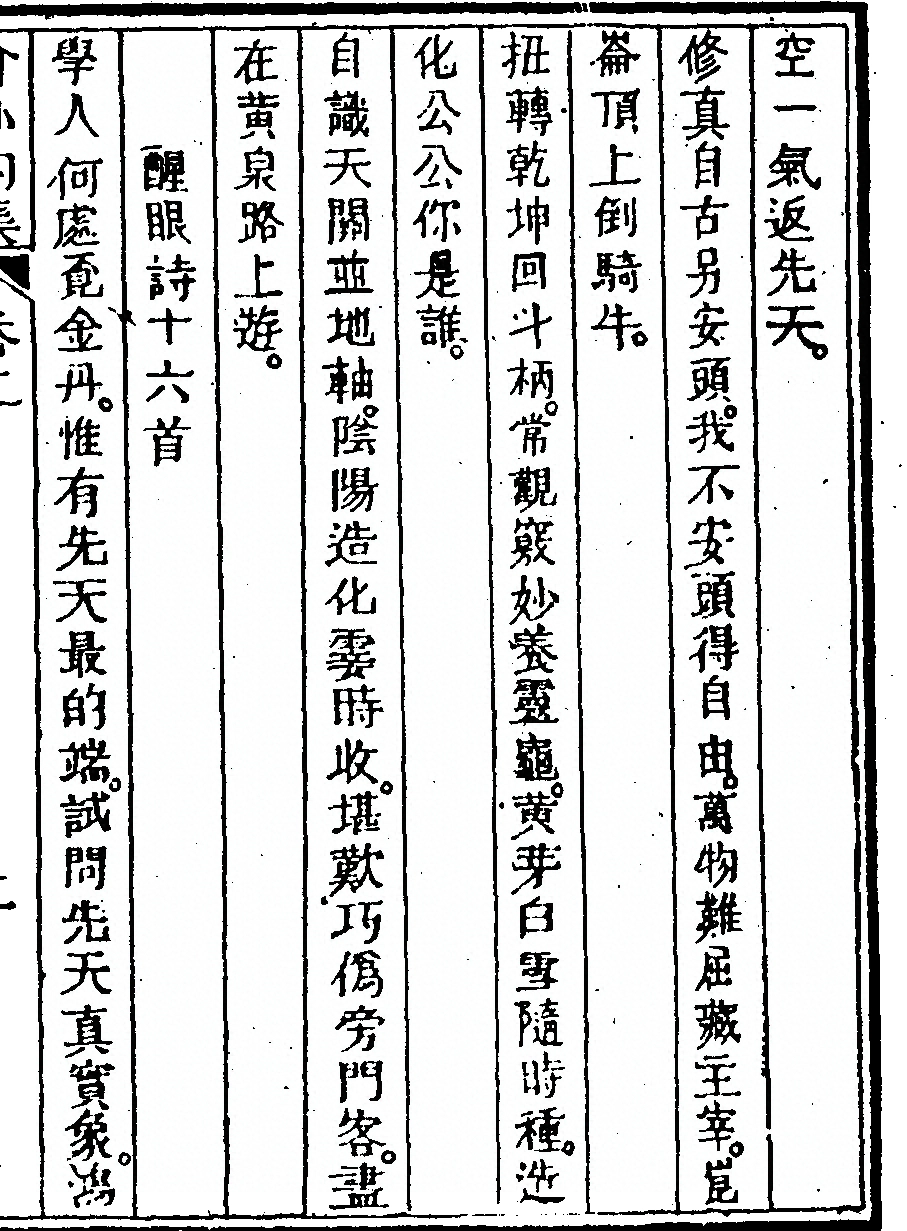 空一氣返先天。
修真自古另安頭。我不安頭得自由。萬物難屈藏主宰。崑
崙頂上倒騎牛。
扭轉乾坤回斗柄。常觀竅妙養靈龜。黃芽白雪隨時種。造
化公公你是誰。
自識天關並地軸。陰陽造化霎時收。堪歎巧僞旁門客。盡
在黃泉路上遊。
醒眼詩十六首
學人何處覓金丹。惟有先天最的端。試問先天真實象。鴻